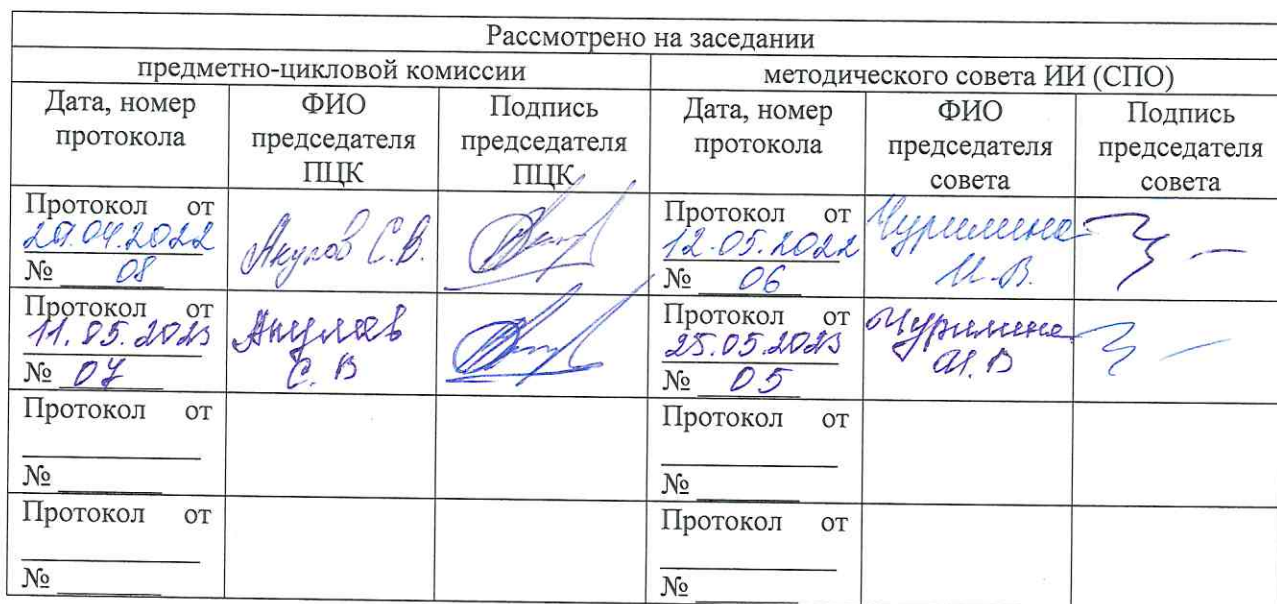 Рассмотрено на заседании
предметно-цикловой комиссии
методического совета ИИ (СПО)
Дата, номер
протокола
ФИО
председателя
ПЦК
Подпись
председателя
ПЦК
Дата, номер
протокола
ФИО
председателя
совета
Подпись
председателя
совета
Протокол от
04.2022
№ 08
Акулов С.В.
Протокол от
12.05.2022
№ 06
Чурилина
И.В.
Протокол от
11.05.2023
№ 07
Акулов
С. В
Протокол от
25.05.2023
№ 05
Чурилина
И. В
Протокол от
№
Протокол от
№
Протокол от
№
Протокол от
№